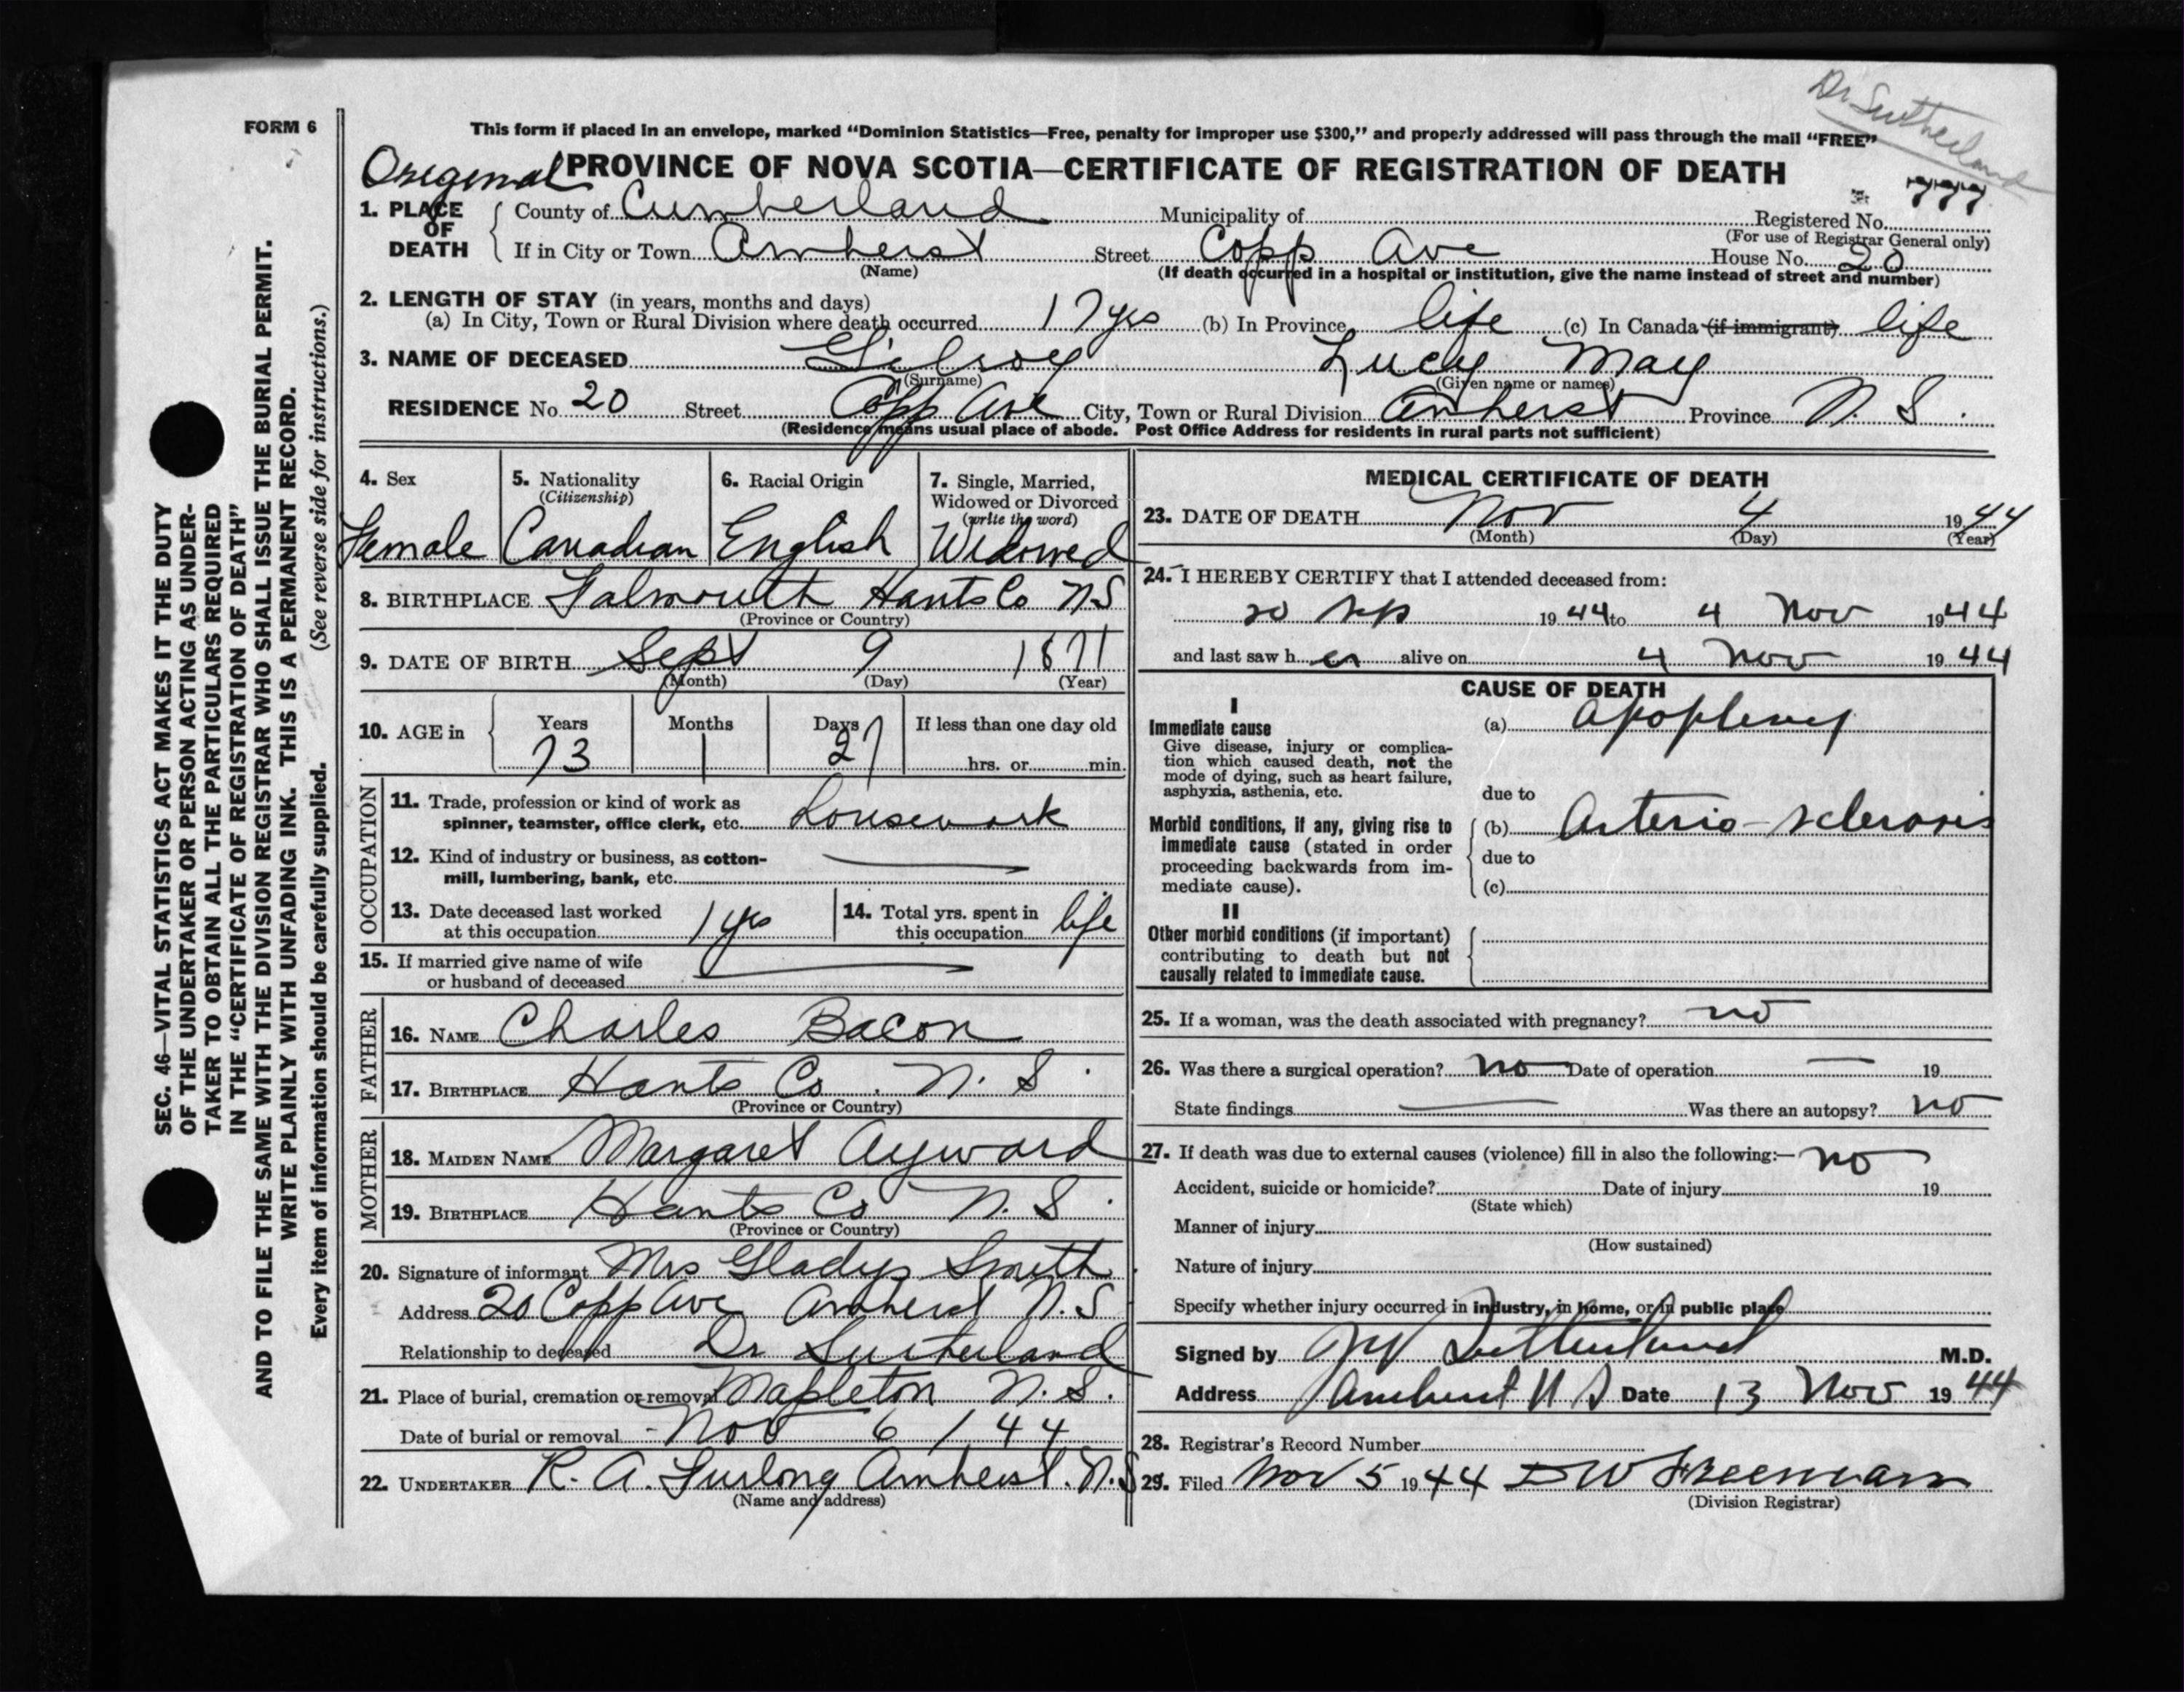 Dr Sutherland
FORM 6
This form if placed in an envelope, marked “Dominion Statistics—Free, penalty for improper use $300,” and properly addressed will pass through the mail “FREE”
Original PROVINCE OF NOVA SCOTIA—CERTIFICATE OF REGISTRATION OF DEATH
777
1. PLACE OF DEATH County of Cumberland Municipality of Registered No.
(For use of Registrar General only)
If in City or Town Amherst Street Copp Ave House No. 20
(Name) (If death occurred in a hospital or institution, give the name instead of street and number)
2. LENGTH OF STAY (in years, months and days)
(a) In City, Town or Rural Division where death occurred 17 yrs (b) In Province life (c) In Canada (if immigrant) life
3. NAME OF DECEASED Gilroy Lucy May
(Surname) (Given name or names)
RESIDENCE No 20 Street Copp Ave City, Town or Rural Division Amherst Province N. S.
(Residence means usual place of abode. Post Office Address for residents in rural parts not sufficient)
4. Sex
Female
5. Nationality
(Citizenship)
Canadian
6. Racial Origin
English
7. Single, Married,
Widowed or Divorced
(write the word)
Widowed
8. BIRTHPLACE Falmouth Hants Co NS
(Province or Country)
9. DATE OF BIRTH Sept 9 1871
(Month) (Day) (Year)
10. AGE in Years Months Days If less than one day old
73 1 27 hrs. or min.
OCCUPATION
11. Trade, profession or kind of work as
spinner, teamster, office clerk, etc. Housework
12. Kind of industry or business, as cotton-
mill, lumbering, bank, etc.
13. Date deceased last worked
at this occupation 1 yrs
14. Total yrs. spent in
this occupation life
15. If married give name of wife
or husband of deceased
FATHER
16. NAME Charles Bacon
17. BIRTHPLACE Hants Co. N. S.
(Province or Country)
MOTHER
18. MAIDEN NAME Margaret Ayward
19. BIRTHPLACE Hants Co N. S.
(Province or Country)
20. Signature of informant Mrs Gladys Smith
Address 20 Copp Ave Amherst N.S
Relationship to deceased Dr Sutherland
21. Place of burial, cremation or removal Mapleton N. S.
Date of burial or removal Nov 6 / 44
22. UNDERTAKER R. A. Furlong Amherst. N.S
(Name and address)
MEDICAL CERTIFICATE OF DEATH
23. DATE OF DEATH Nov 4 1944
(Month) (Day) (Year)
24. I HEREBY CERTIFY that I attended deceased from:
20 Sep 1944 to 4 Nov 1944
and last saw her alive on 4 Nov 1944
CAUSE OF DEATH
I
Immediate cause
Give disease, injury or complica-
tion which caused death, not the
mode of dying, such as heart failure,
asphyxia, asthenia, etc.
(a) Apoplexy
due to
Morbid conditions, if any, giving rise to
immediate cause (stated in order
proceeding backwards from im-
mediate cause).
(b) Arterio-sclerosis
due to
(c)
II
Other morbid conditions (if important)
contributing to death but not
causally related to immediate cause.
25. If a woman, was the death associated with pregnancy? no
26. Was there a surgical operation? no Date of operation 19
State findings Was there an autopsy? no
27. If death was due to external causes (violence) fill in also the following:— no
Accident, suicide or homicide? Date of injury 19
(State which)
Manner of injury
(How sustained)
Nature of injury
Specify whether injury occurred in industry, in home, or in public place
Signed by Sutherland M.D.
Address Amherst N S Date 13 Nov 1944
28. Registrar's Record Number
29. Filed Nov 5 1944 D W Freeman
(Division Registrar)
SEC. 46—VITAL STATISTICS ACT MAKES IT THE DUTY
OF THE UNDERTAKER OR PERSON ACTING AS UNDER-
TAKER TO OBTAIN ALL THE PARTICULARS REQUIRED
IN THE “CERTIFICATE OF REGISTRATION OF DEATH”
AND TO FILE THE SAME WITH THE DIVISION REGISTRAR WHO SHALL ISSUE THE BURIAL PERMIT.
WRITE PLAINLY WITH UNFADING INK. THIS IS A PERMANENT RECORD.
Every item of information should be carefully supplied. (See reverse side for instructions.)